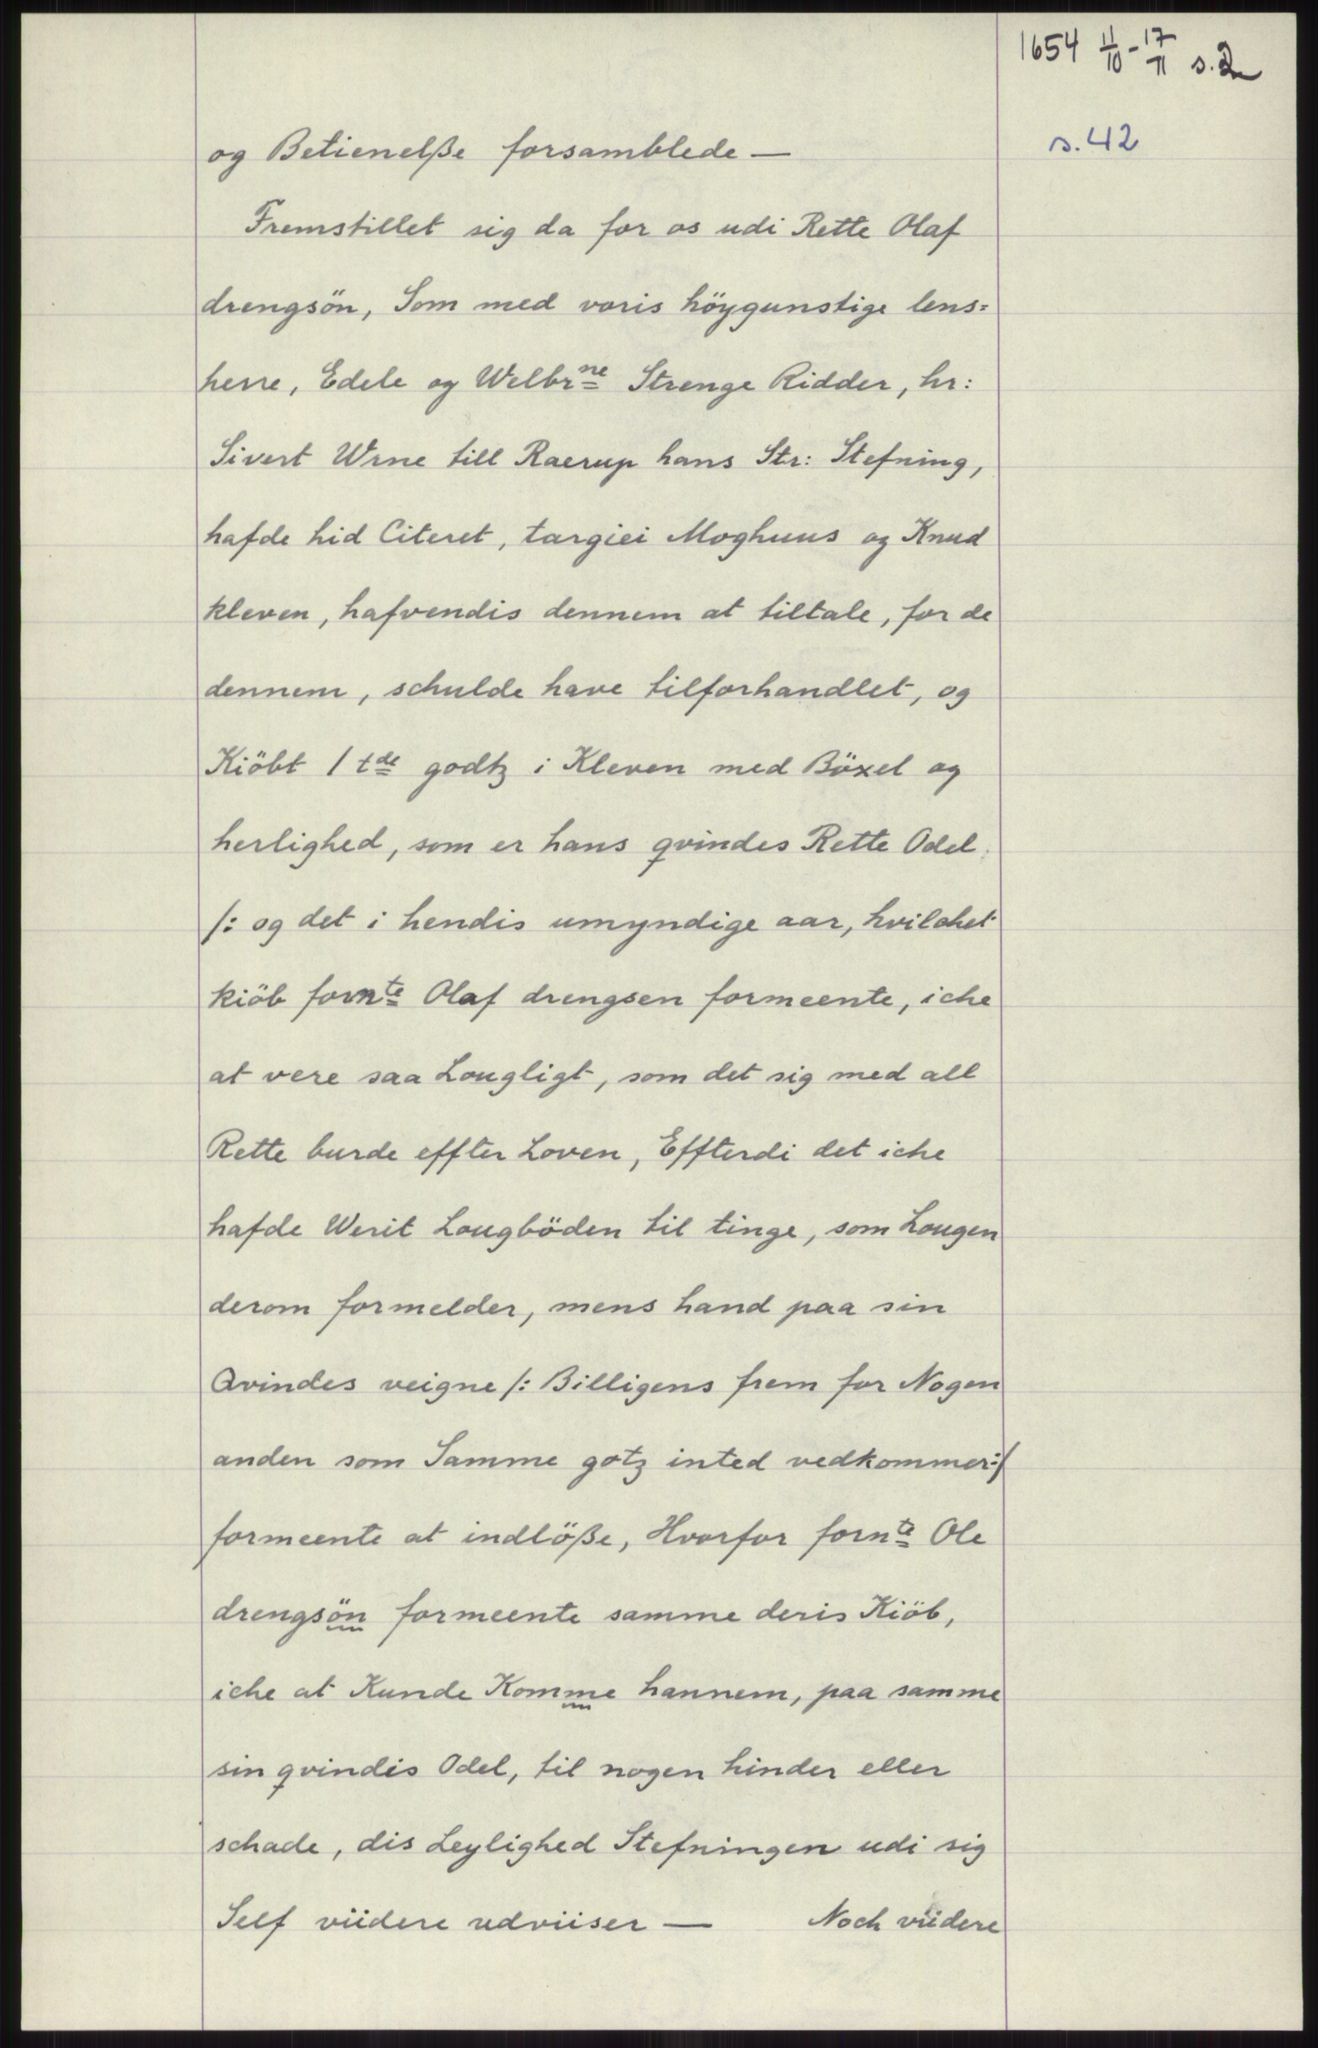 1654 11/10 - 17/11 s. 2
s. 42
og Betienelße forsamblede —
Fremstillet sig da for os udi Rette Olaf
drengsön, Som med voris höygunstige lens=
herre, Edele og Welbrne Strenge Ridder, hr:
Sivert Wrne till Raerup hans Str: Stefning,
hafde hid Citeret, targiei Moghuus og Knud
kleven, hafvendis dennem at tiltale, for de
dennem, schulde have tilforhandlet, og
Kiöbt 1 tde godtz i Kleven med Böxel og
herlighed, som er hans qvindes Rette Odel
/: og det i hendis umyndige aar, hvilchet
kiöb fornte Olaf drengsen formeente, iche
at vere saa Lougligt, som det sig med all
Rette burde effter Loven, Effterdi det iche
hafde Werit Lougböden til tinge, som Lougen
derom formelder, mens hand paa sin
Qvindes veigne /: Billigens frem for Nogen
anden som Samme gotz inted vedkommer :/
formeente at indlöße, Hvorfor fornte Ole
drengsön formeente samme deris Kiöb,
iche at Kunde Komme hannem, paa samme
sin qvindis Odel, til nogen hinder eller
schade, dis Leylighed Stefningen udi sig
Self viidere udviiser — Noch viidere